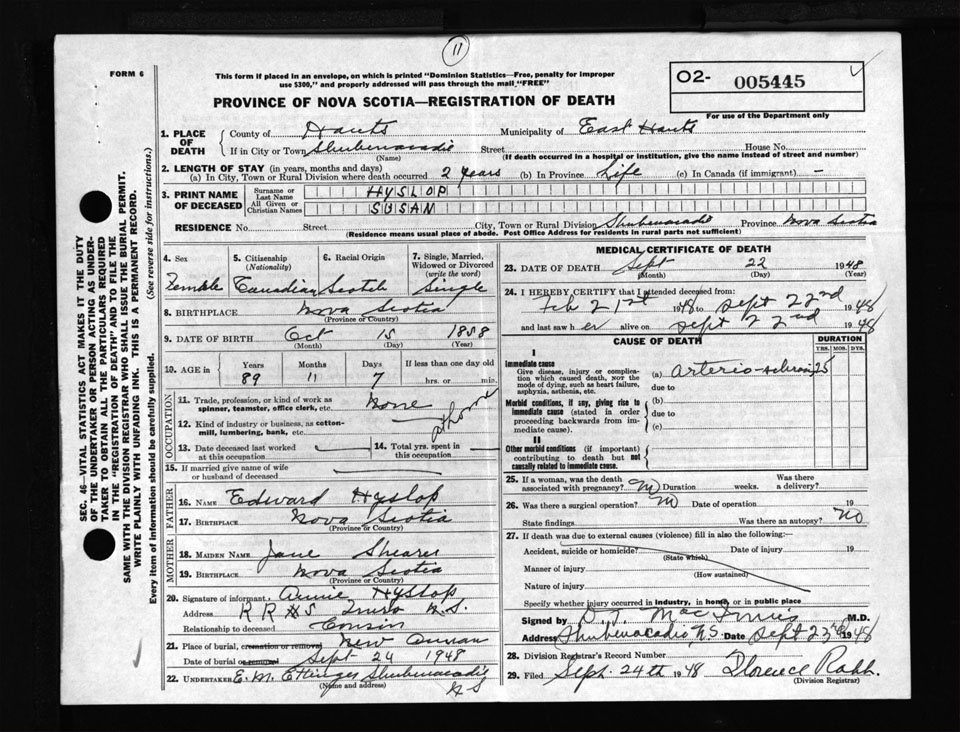 11
FORM 6
This form if placed in an envelope, on which is printed "Dominion Statistics—Free, penalty for improper
use $300," and properly addressed will pass through the mail "FREE"
O2- 005445
For use of the Department only
PROVINCE OF NOVA SCOTIA—REGISTRATION OF DEATH
SEC. 46—VITAL STATISTICS ACT MAKES IT THE DUTY
OF THE UNDERTAKER OR PERSON ACTING AS UNDER-
TAKER TO OBTAIN ALL THE PARTICULARS REQUIRED
IN THE "REGISTRATION OF DEATH" AND TO FILE THE
SAME WITH THE DIVISION REGISTRAR WHO SHALL ISSUE THE BURIAL PERMIT.
WRITE PLAINLY WITH UNFADING INK. THIS IS A PERMANENT RECORD.
Every item of information should be carefully supplied. (See reverse side for instructions.)
1. PLACE OF DEATH County of Hants Municipality of East Hants
If in City or Town Shubenacadie Street House No.
(Name) (If death occurred in a hospital or institution, give the name instead of street and number)
2. LENGTH OF STAY (in years, months and days)
(a) In City, Town or Rural Division where death occurred 2 years (b) In Province Life (c) In Canada (if immigrant) —
3. PRINT NAME OF DECEASED Surname or Last Name HYSLOP
All Given or Christian Names SUSAN
RESIDENCE No. Street City, Town or Rural Division Shubenacadie Province Nova Scotia
(Residence means usual place of abode. Post Office Address for residents in rural parts not sufficient)
4. Sex 5. Citizenship (Nationality) 6. Racial Origin 7. Single, Married, Widowed or Divorced (write the word)
Female Canadian Scotch Single
8. BIRTHPLACE Nova Scotia
(Province or Country)
9. DATE OF BIRTH Oct 15 1858
(Month) (Day) (Year)
10. AGE in Years Months Days If less than one day old
89 11 7 hrs. or min.
OCCUPATION
11. Trade, profession, or kind of work as
spinner, teamster, office clerk, etc. None
12. Kind of industry or business, as cotton-
mill, lumbering, bank, etc. at home
13. Date deceased last worked at this occupation 14. Total yrs. spent in this occupation
15. If married give name of wife
or husband of deceased
FATHER
16. NAME Edward Hyslop
17. BIRTHPLACE Nova Scotia
(Province or Country)
MOTHER
18. MAIDEN NAME Jane Shearer
19. BIRTHPLACE Nova Scotia
(Province or Country)
20. Signature of informant Annie Hyslop
Address RR #5 Truro N.S.
Relationship to deceased Cousin
21. Place of burial, cremation or removal New Annan
Date of burial or removal Sept 24 1948
22. UNDERTAKER E. M. Ettinger Shubenacadie
(Name and address) NS
MEDICAL CERTIFICATE OF DEATH
23. DATE OF DEATH Sept 22 1948
(Month) (Day) (Year)
24. I HEREBY CERTIFY that I attended deceased from:
Feb 21st 1948 to Sept 22nd 1948
and last saw her alive on Sept 22nd 1948
CAUSE OF DEATH DURATION
YRS. MOS. DYS.
I
Immediate cause
Give disease, injury or complica-
tion which caused death, NOT the
mode of dying, such as heart failure,
asphyxia, asthenia, etc.
(a) Arterio-sclerosis 25
due to
Morbid conditions, if any, giving rise to
immediate cause (stated in order
proceeding backwards from im-
mediate cause).
(b)
due to
(c)
II
Other morbid conditions (if important)
contributing to death but not
causally related to immediate cause.
25. If a woman, was the death
associated with pregnancy? No Duration weeks. Was there a delivery?
26. Was there a surgical operation? No Date of operation 19
State findings Was there an autopsy? No
27. If death was due to external causes (violence) fill in also the following:—
Accident, suicide or homicide? Date of injury 19
(State which)
Manner of injury
(How sustained)
Nature of injury
Specify whether injury occurred in industry, in home or in public place
Signed by D. F. MacInnis M.D.
Address Shubenacadie N.S. Date Sept 23rd 1948
28. Division Registrar's Record Number
29. Filed Sept. 24th 1948 Florence Rabb.
(Division Registrar)